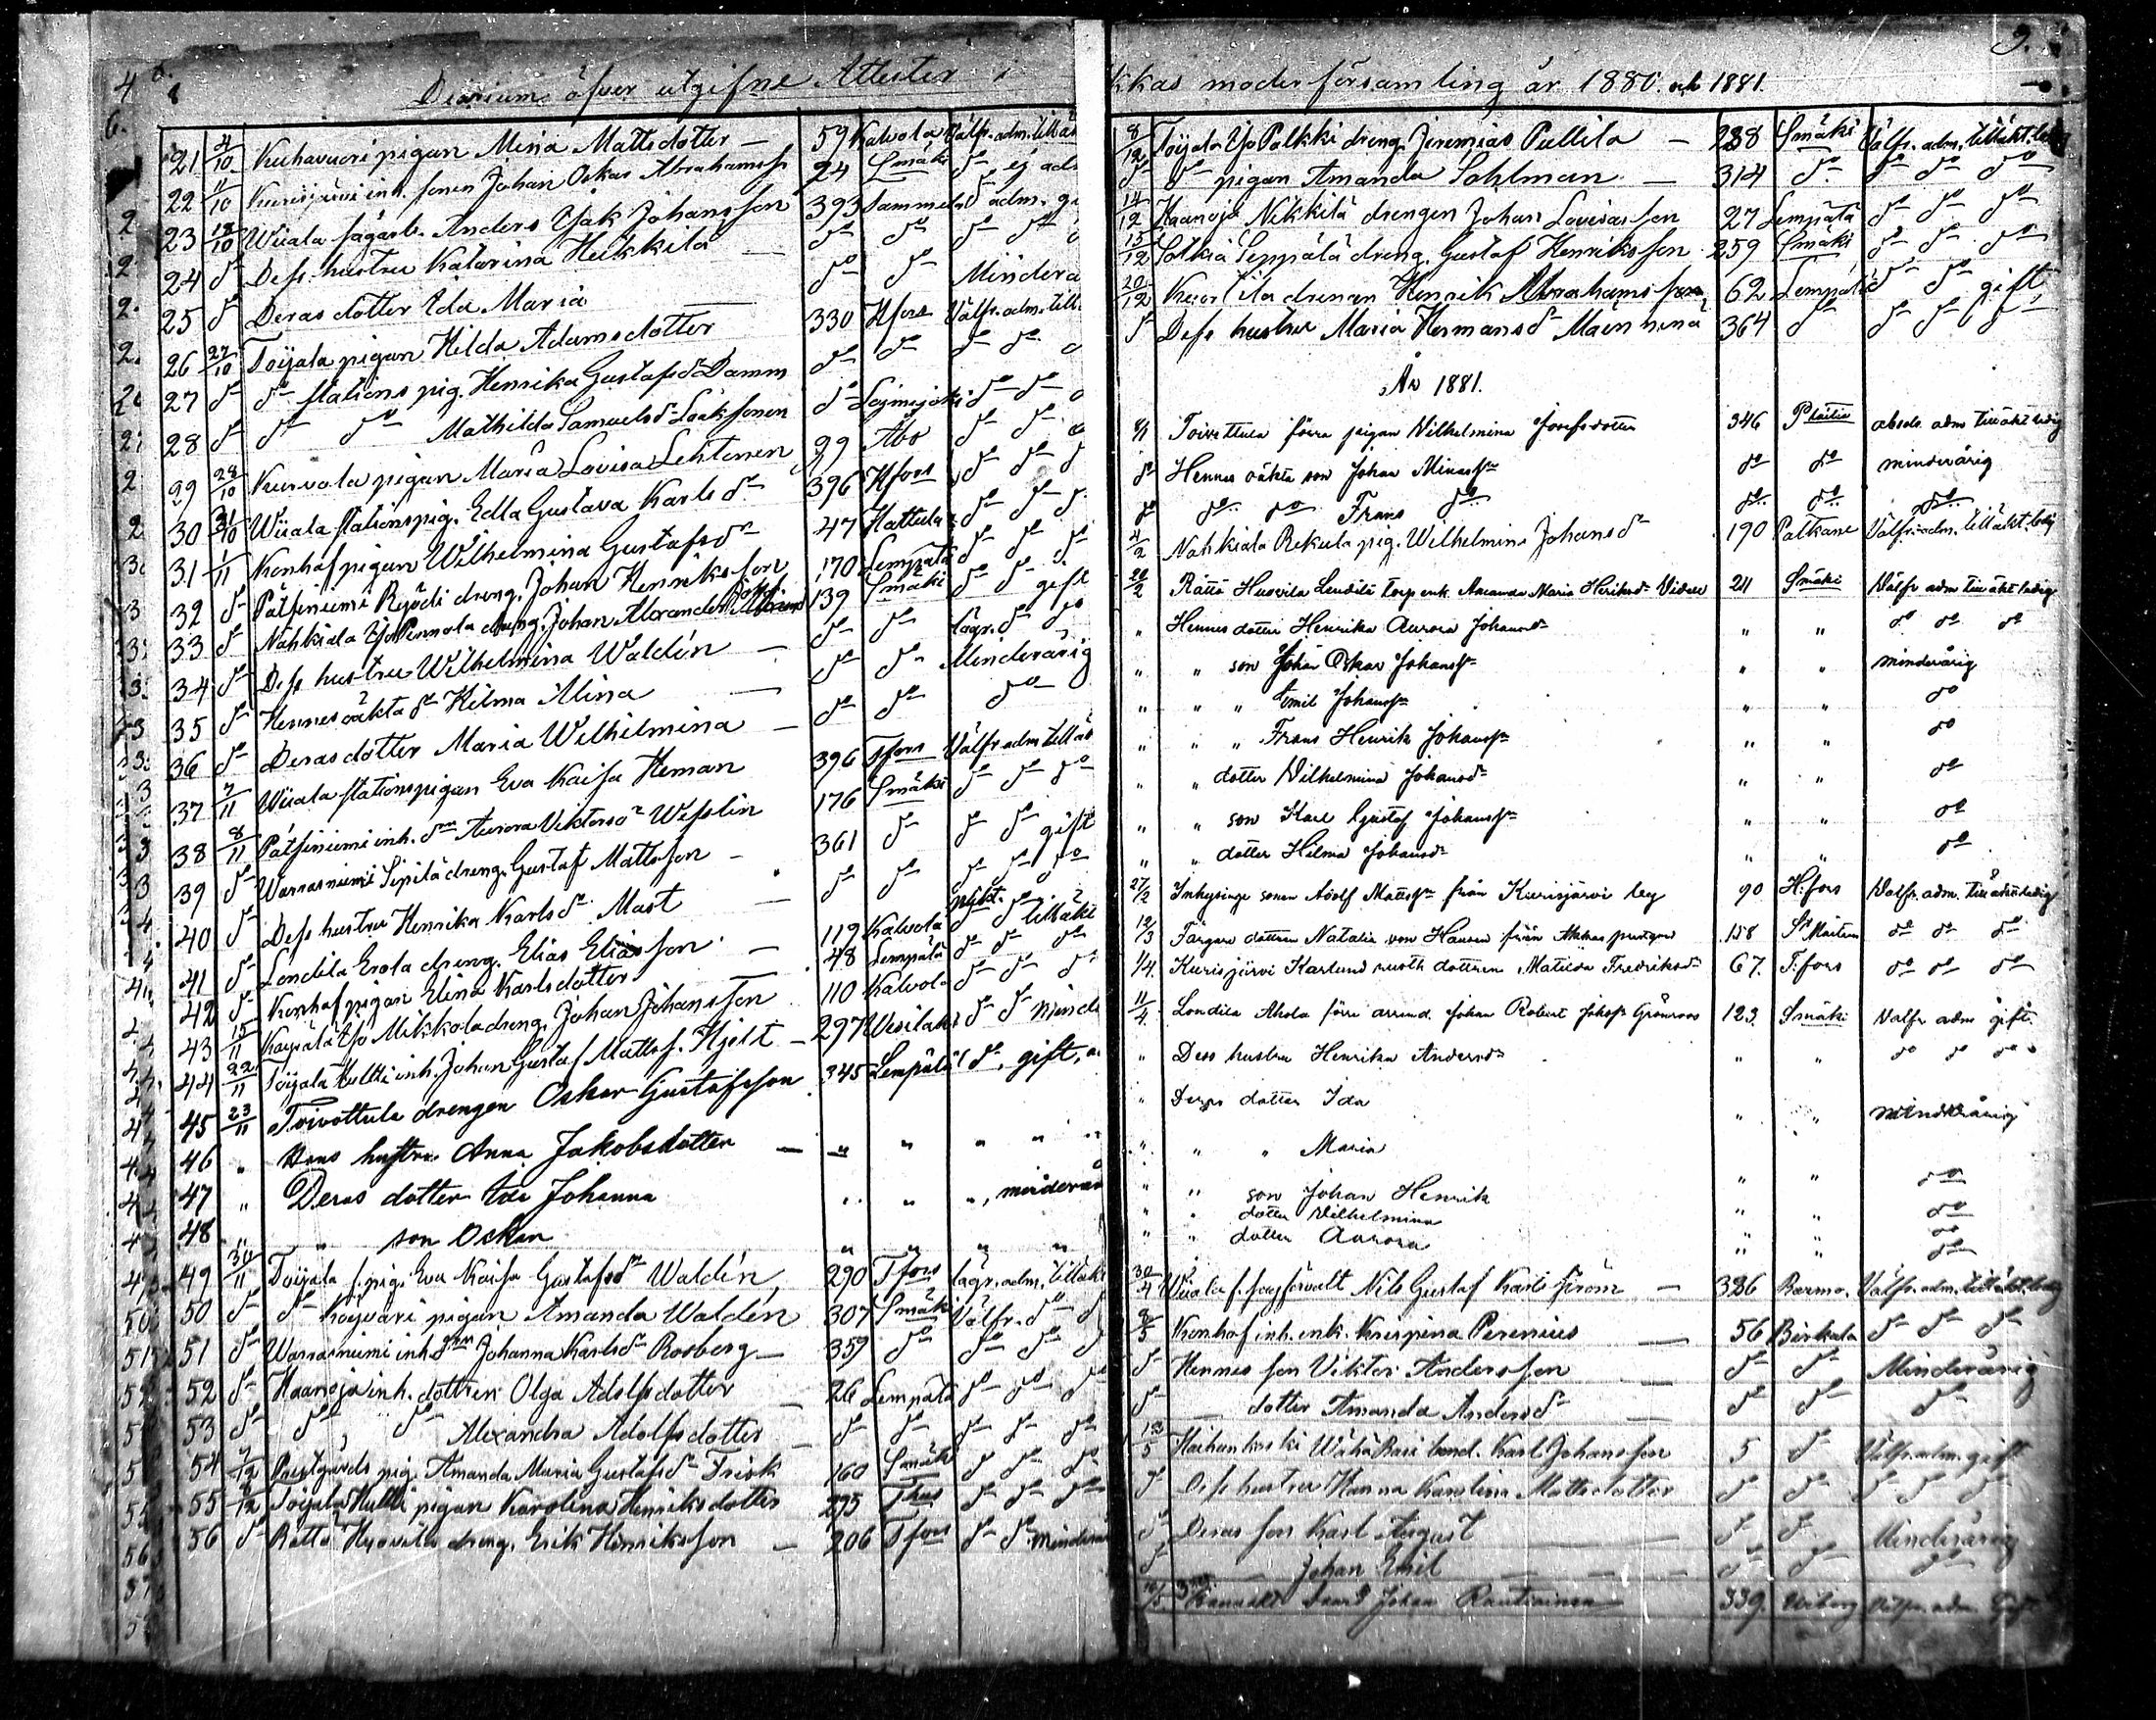 Diarium öfver utgifne Attester
21 4/10 Kuhavuori pigan Mina Mattsdotter — 59 Kalvola Välfr. adm. till äk
22 11/10 Kurisjärvi inh. sonen Johan Oskar Abrahamss. 24 Smäki do ej adm
23 18/10 Wiiala sågarb. Anders Isak Johansson 393 Tammela do adm. gi
24 do Dess hustru Katarina Heikkilä — do do do do
25 do Deras dotter Ida Maria — do do Mindera
26 27/10 Toijala pigan Hilda Adamsdotter 330 Hfors Välfr. adm. till
27 do do stations pig. Henrika Gustafsdr Damm do do do do
28 do do do Mathilda Samuelsdr Isaksonen do do do
29 28/10 Kurvola pigan Maria Lovisa Lehtonen 99 Åbo do do
30 31/10 Wiiala stationspig. Edla Gustava Karlsdr 396 Hfors do do do
31 1/11 Konhof pigan Wilhelmina Gustafsdr 47 Hattula do do do
32 do Pätsiniemi Ryödi dreng. Johan Henriksson 170 Lempälä do do do
33 do Nahkiala Yjo Pennola dreng. Johan Alexander 139 Smäki do do gift
34 do Dess hustru Wilhelmina Waldén — do do lägr. do do
35 do Hennes oäkta dr Hilma Mina — do do Minderårig
36 do Deras dotter Maria Wilhelmina — do do do
37 7/11 Wiiala stationspigan Eva Kaisa Heman 396 Tfors Välfr adm till äk
38 8/11 Pätsiniemi inh. drn Aurora Viktorsdr Wesslin 176 Smäki do do do
39 do Warrasniemi Sipilä dreng. Gustaf Mattsson — 361 do do do gift
40 do Dess hustru Henrika Karlsdr Mast — do do do do do
41 do Londila Erola dreng. Elias Eliasson — 119 Kalvola do do till äkt
42 do Konhof pigan Elina Karlsdotter — 48 Lempälä do do do
43 15/11 Kaijala Yjo Mikkola dreng. Johan Johansson 110 Kalvol. do do do
44 22/11 Toijala Hultti inh. Johan Gustaf Mattss. Hjelt — 297 Wesilaks do do Minde
45 23/11 Toivottula drengen Oskar Gustafsson 345 Lempälä do, gift, a
46 " Hans hustru Anna Jakobsdotter — " " " " "
47 " Deras dotter Ida Johanna " " ", minderår
48 " " son Oskar " " " "
49 30/11 Toijala f. pig. Eva Kaisa Gustafsdr Waldén 290 Tfors lägr. adm. till äkt
50 do do Köyvari pigan Amanda Waldén 307 Smäki Välfr. do do
51 do Warrasniemi inh drn Johanna Karlsdr Rosberg — 359 do do do do
52 do Haanoja inh. dottren Olga Adolfsdotter — 26 Lempälä do do do
53 do do do Alexandra Adolfsdotter — do do do do do
54 7/12 Prestgårds pig. Amanda Maria Gustafsdr Frisk 160 Smäki do do do
55 8/12 Toijala Hultti pigan Karolina Henriksdotter 295 Thus do do do
56 do Rättö Huovila dreng. Erik Henriksson — 206 Tfors do do minderår
9.
kkas moderförsamling år 1880 och 1881.
8/12 Toijala Yjo Palkki dreng. Jeremias Pullila — 288 Smäki Välfr. adm. till äkt. ledig
do do pigan Amanda Sohlman — 314 do do do do
14/12 Haanoja Nikkilä drengen Johan Lovisasson 27 Lempälä do do do
15/12 Sotkia Seppälä dreng. Gustaf Henriksson 259 Smäki do do do
20/12 Henrik Abrahamsson 62 Lempälä do do gift
do Dess hustru Maria Hermansdr Männinä 364 do do do do
År 1881.
8/1 Toivottula förra pigan Wilhelmina Josefsdotter 346 adm till äkt ledig
do Hennes oäkta son Johan Minass. do do minderårig
do do do Frans do do do do
4/2 Nahkiala Rekula pig. Wilhelmina Johansdr 190 Palkane Välfr. adm. till äkt. ledig
20/2 Rättö Huovila Lendilä torp enk. Amanda Maria 211 Smäki Välfr adm till äkt ledig
" Hennes dotter Henrika Aurora Johansdr " " do do do
" " son Johan Oskar Johanss. " " minderårig
" " " Emil Johanss. " " do
" " " Frans Henrik Johanss. " " do
" " dotter Wilhelmina Johansdr " " do
" " son Karl Gustaf Johanss. " " do
" " dotter Hilma Johansdr " " do
27/2 Inhysinge sonen Adolf Mattss. från Kurisjärvi by 90 H:fors Välfr. adm. till äkt ledig
12/3 Färgare dottren Natalia von Hausen från Akkas 158 St Mårtens do do do
1/4 Kurisjärvi Karlund rusth. dottren Matilda Fredriksdr 67. T:fors do do do
11/4 Londila Ahola förre arrend. Johan Robert Johss. Grönroos 123. Smäki Välfr adm gift.
" Dess hustru Henrika Andersdr " " do do do
" Deras dotter Ida " " minderårig
" " " Maria " " do
" " son Johan Henrik " " do
" " dotter Wilhelmina " " do
" " dotter Aurora " " do
30/4 Wiiala f. sågförvalt Nils Gustaf Karlström — 386 Barmo. Välfr. adm. till äkt. ledig
9/5 Konhof inh. enk. Krispina Perenius — 56 Birkala do do do
do Hennes son Viktor Andersson — do do Minderårig
do dotter Amanda Andersdr — do do do
13/5 Haihunkoski Wähä Rasi bond. Karl Johansson 5 do Välfr. adm. gift
do Dess hustru Hanna Karolina Mattsdotter do do do do do
do Deras son Karl August — do do Minderårig
do — Johan Emil — do do do
16/5 Johan Rautiainen — 339. Wiborg Välfr. adm. Gift